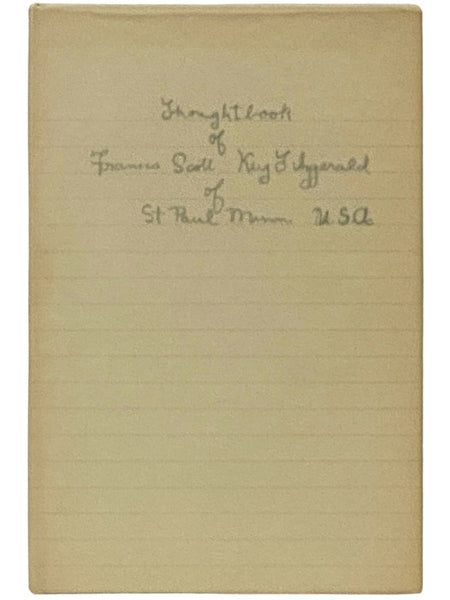 Thoughtbook
of
Francis Scott Key Fitzgerald
of
St Paul Minn. USA